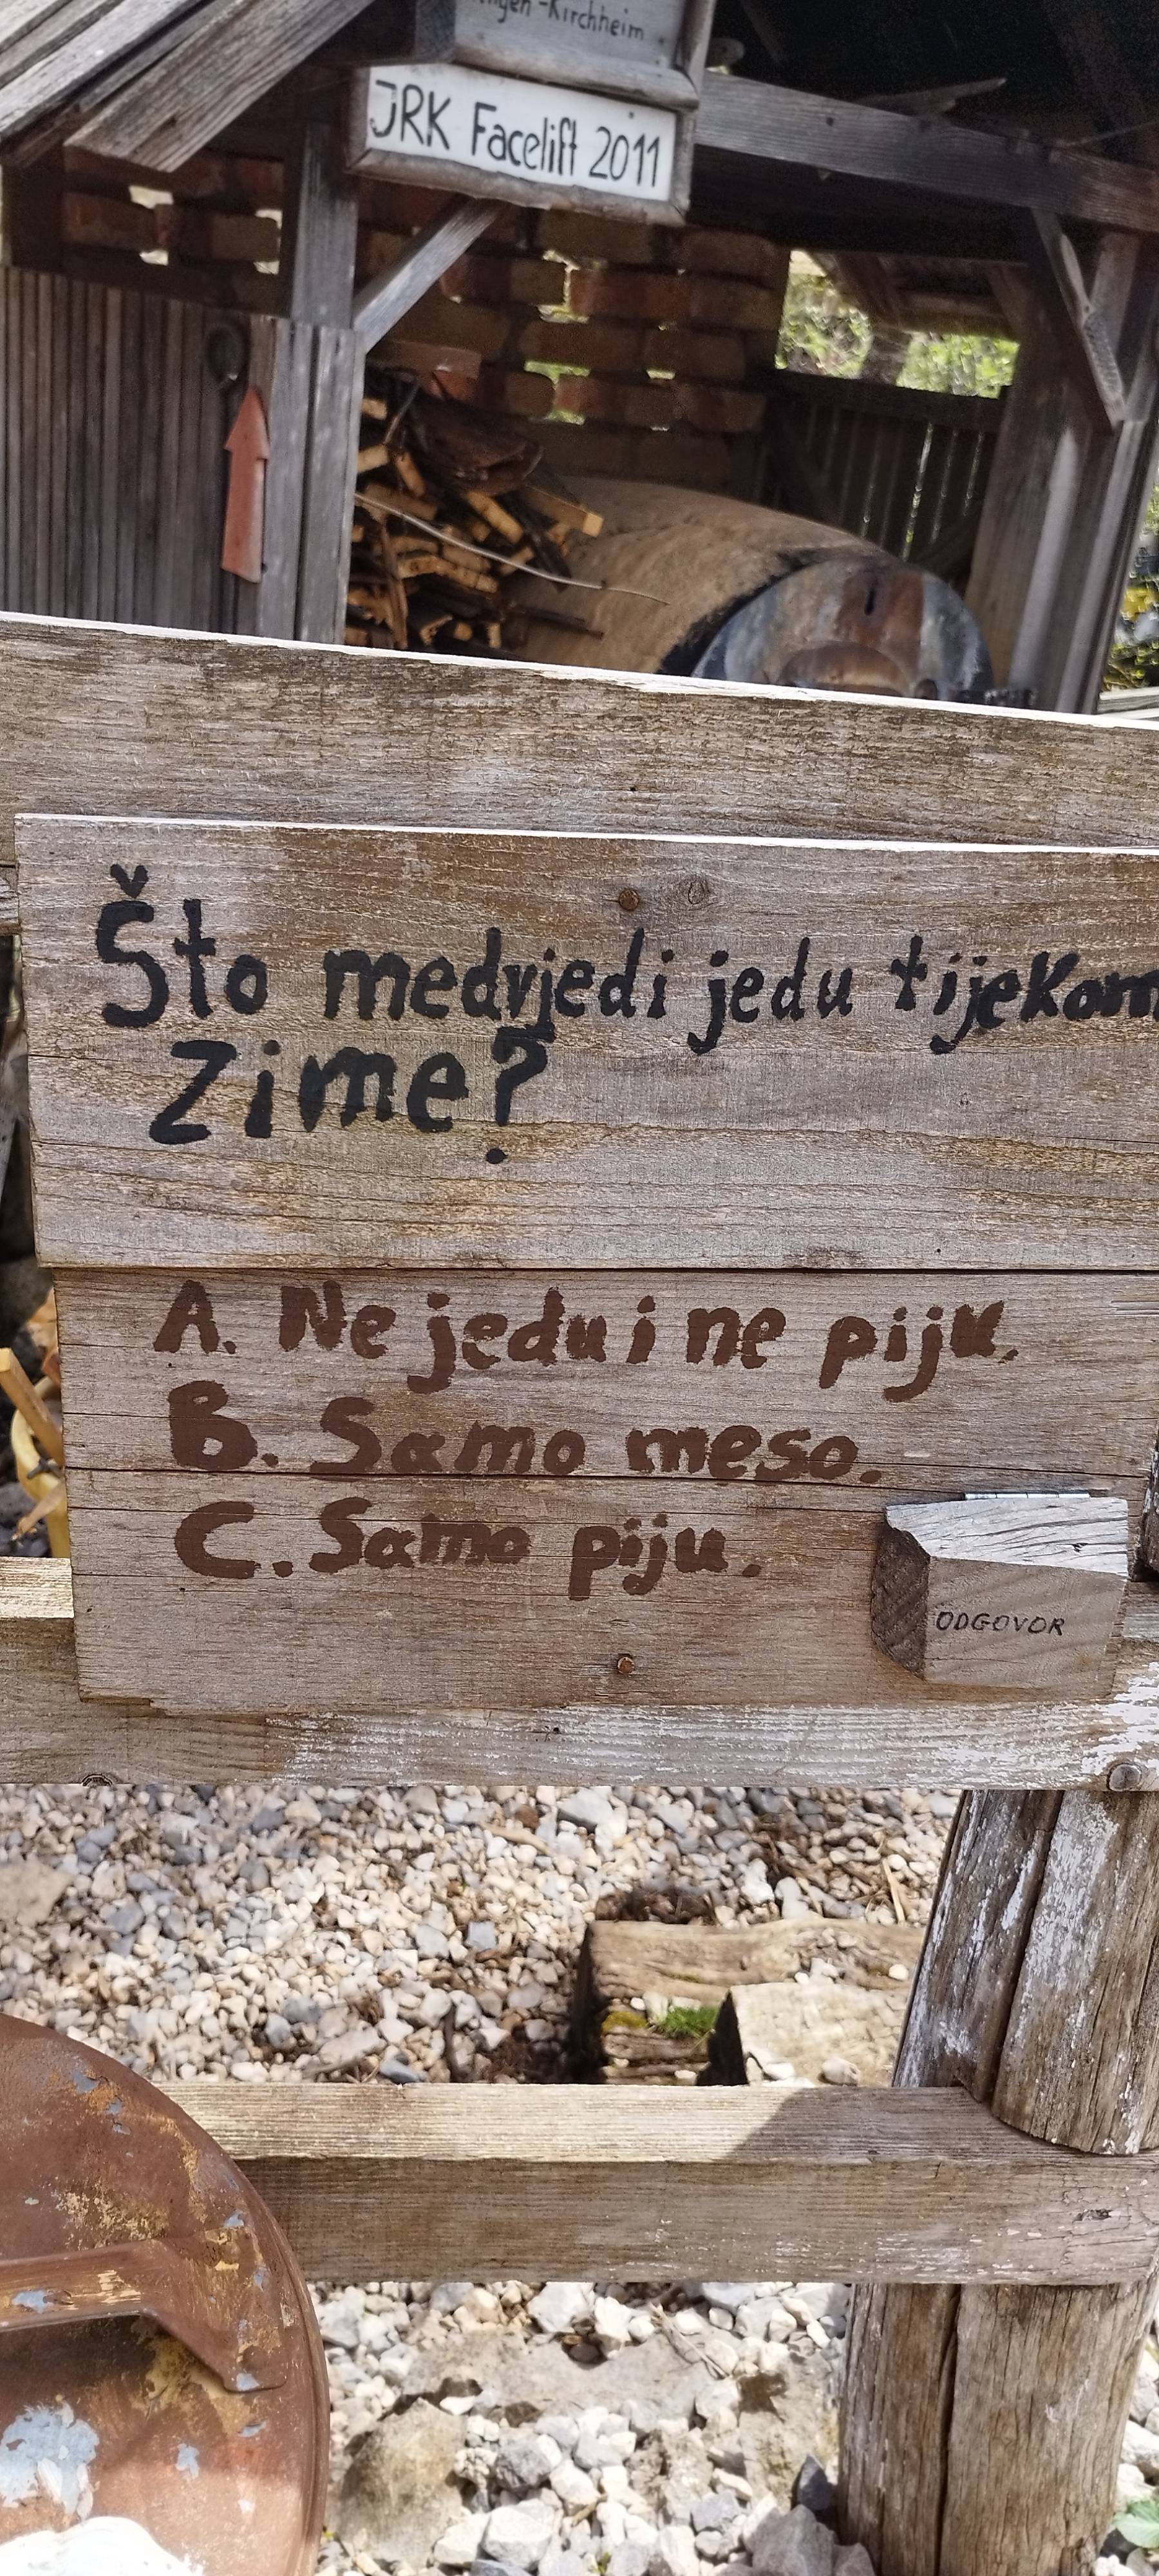 -Kirchheim
JRK Facelift 2011
Što medvjedi jedu tijekom
zime?
A. Ne jedu i ne piju.
B. Samo meso.
C. Samo piju.
ODGOVOR